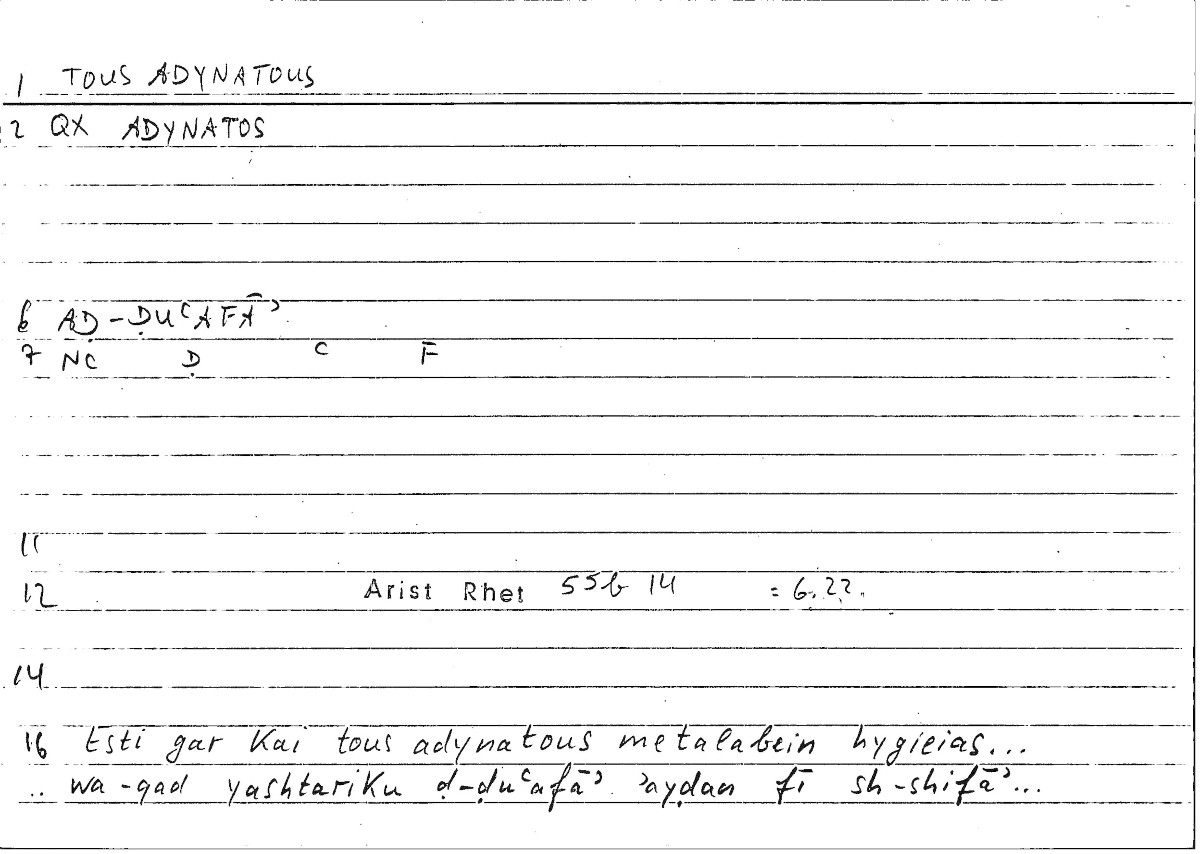 1 TOUS ADYNATOUS
2 QX ADYNATOS
6 AḌ-ḌUʿAFĀʾ
7 NC Ḍ ʿ F
11
12 Arist Rhet 55b 14 = 6.22.
14
16 Esti gar kai tous adynatous metalabein hygieias...
.. wa-qad yashtariku ḍ-ḍuʿafāʾ ʾayḍan fī sh-shifāʾ...